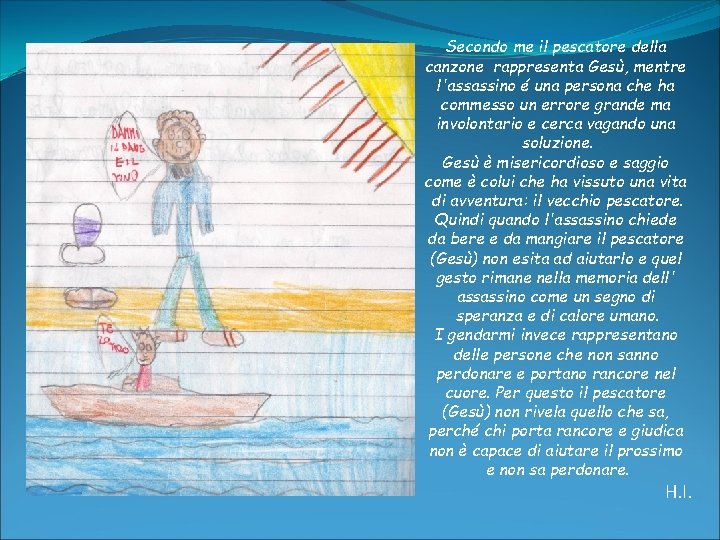 DAMMI
IL PANE
E IL
VINO
TE
LO DO
Secondo me il pescatore della
canzone rappresenta Gesù, mentre
l'assassino é una persona che ha
commesso un errore grande ma
involontario e cerca vagando una
soluzione.
Gesù è misericordioso e saggio
come è colui che ha vissuto una vita
di avventura: il vecchio pescatore.
Quindi quando l'assassino chiede
da bere e da mangiare il pescatore
(Gesù) non esita ad aiutarlo e quel
gesto rimane nella memoria dell'
assassino come un segno di
speranza e di calore umano.
I gendarmi invece rappresentano
delle persone che non sanno
perdonare e portano rancore nel
cuore. Per questo il pescatore
(Gesù) non rivela quello che sa,
perché chi porta rancore e giudica
non è capace di aiutare il prossimo
e non sa perdonare.
H.I.